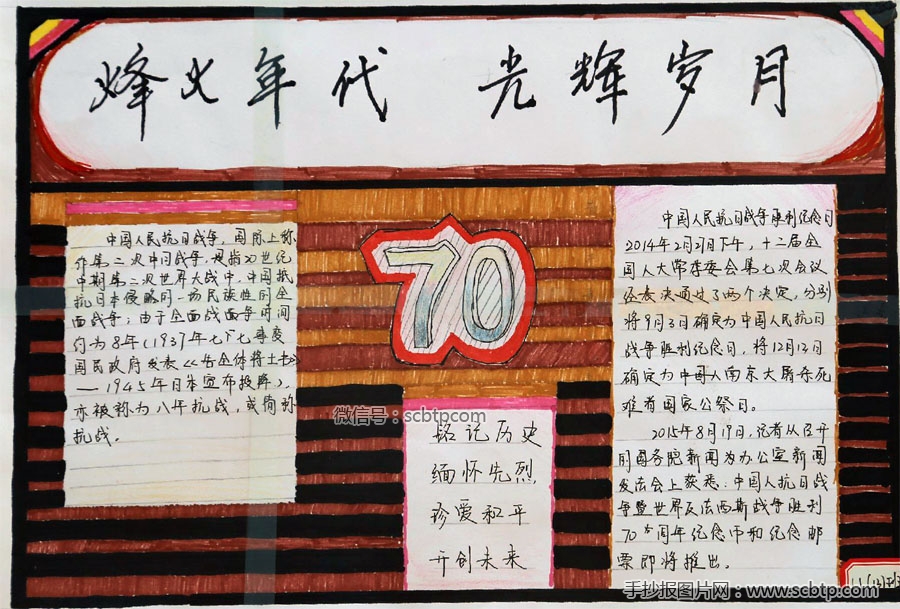 烽火年代 光辉岁月
中国人民抗日战争，国际上称
作第二次中日战争，观指20世纪
中期第二次世界大战中，中国抵
抗日本侵略的一场民族性的全
面战争；由于全面战面争时间
约为8年（1937年七·七事变
国民政府发表《告全体将士书》
—1945年日本宣布投降），
亦被称为八年抗战，或简称
抗战。
70
铭记历史
缅怀先烈
珍爱和平
开创未来
中国人民抗日战争胜利纪念日
2014年2月27日下午，十二届全
国人大常委委会第七次会议
经表决通过了两个决定，分别
将9月3日确定为中国人民抗日
战争胜利纪念日，将12月13日
确定为中国人南京大屠杀死
难者国家公祭日。
2015年8月19日，记者从召开
的国务院新闻为办公室新闻
发法会上获悉：中国人抗日战
争暨世界反法西斯战争胜利
70周年纪念币和纪念邮
票即将推出。
微信号：scbtpcom
手抄报图片网：www.scbtp.com